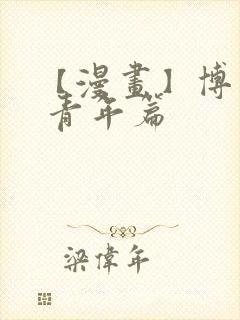 【漫畫】博
青年篇
梁偉年